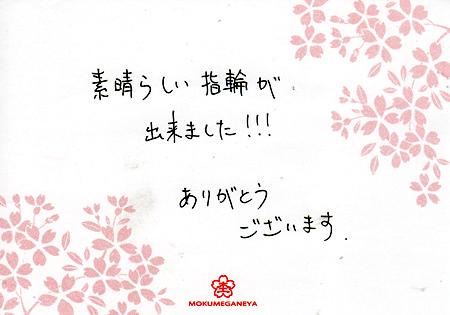 素晴らしい指輪が
出来ました!!!
ありがとう
ございます.
MOKUMEGANEYA